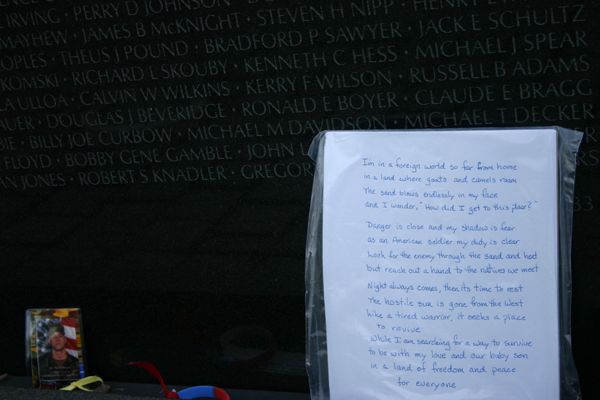 IRVING · PERRY D JOHNSON
MAYHEW · JAMES B McKNIGHT · STEVEN H NIPP
THEUS J POUND · BRADFORD P SAWYER · JACK E SCHULTZ
RICHARD L SKOUBY · KENNETH C HESS · MICHAEL J SPEAR
ULLOA · CALVIN W WILKINS · KERRY F WILSON · RUSSELL B ADAMS
DOUGLAS J BEVERIDGE · RONALD E BOYER · CLAUDE E BRAGG
BILLY JOE CURBOW · MICHAEL M DAVIDSON · MICHAEL T DECKER
FLOYD · BOBBY GENE GAMBLE · JOHN L
JONES · ROBERT S KNADLER · GREGORY
I'm in a foreign world so far from home
in a land where goats and camels roam
The sand blows endlessly in my face
and I wonder, "How did I get to this place?"
Danger is close and my shadow is fear
as an American soldier my duty is clear
Look for the enemy through the sand and heat
but reach out a hand to the natives we meet
Night always comes, then its time to rest
The hostile sun is gone from the West
Like a tired warrior, it seeks a place
to revive
While I am searching for a way to survive
to be with my love and our baby son
in a land of freedom and peace
for everyone